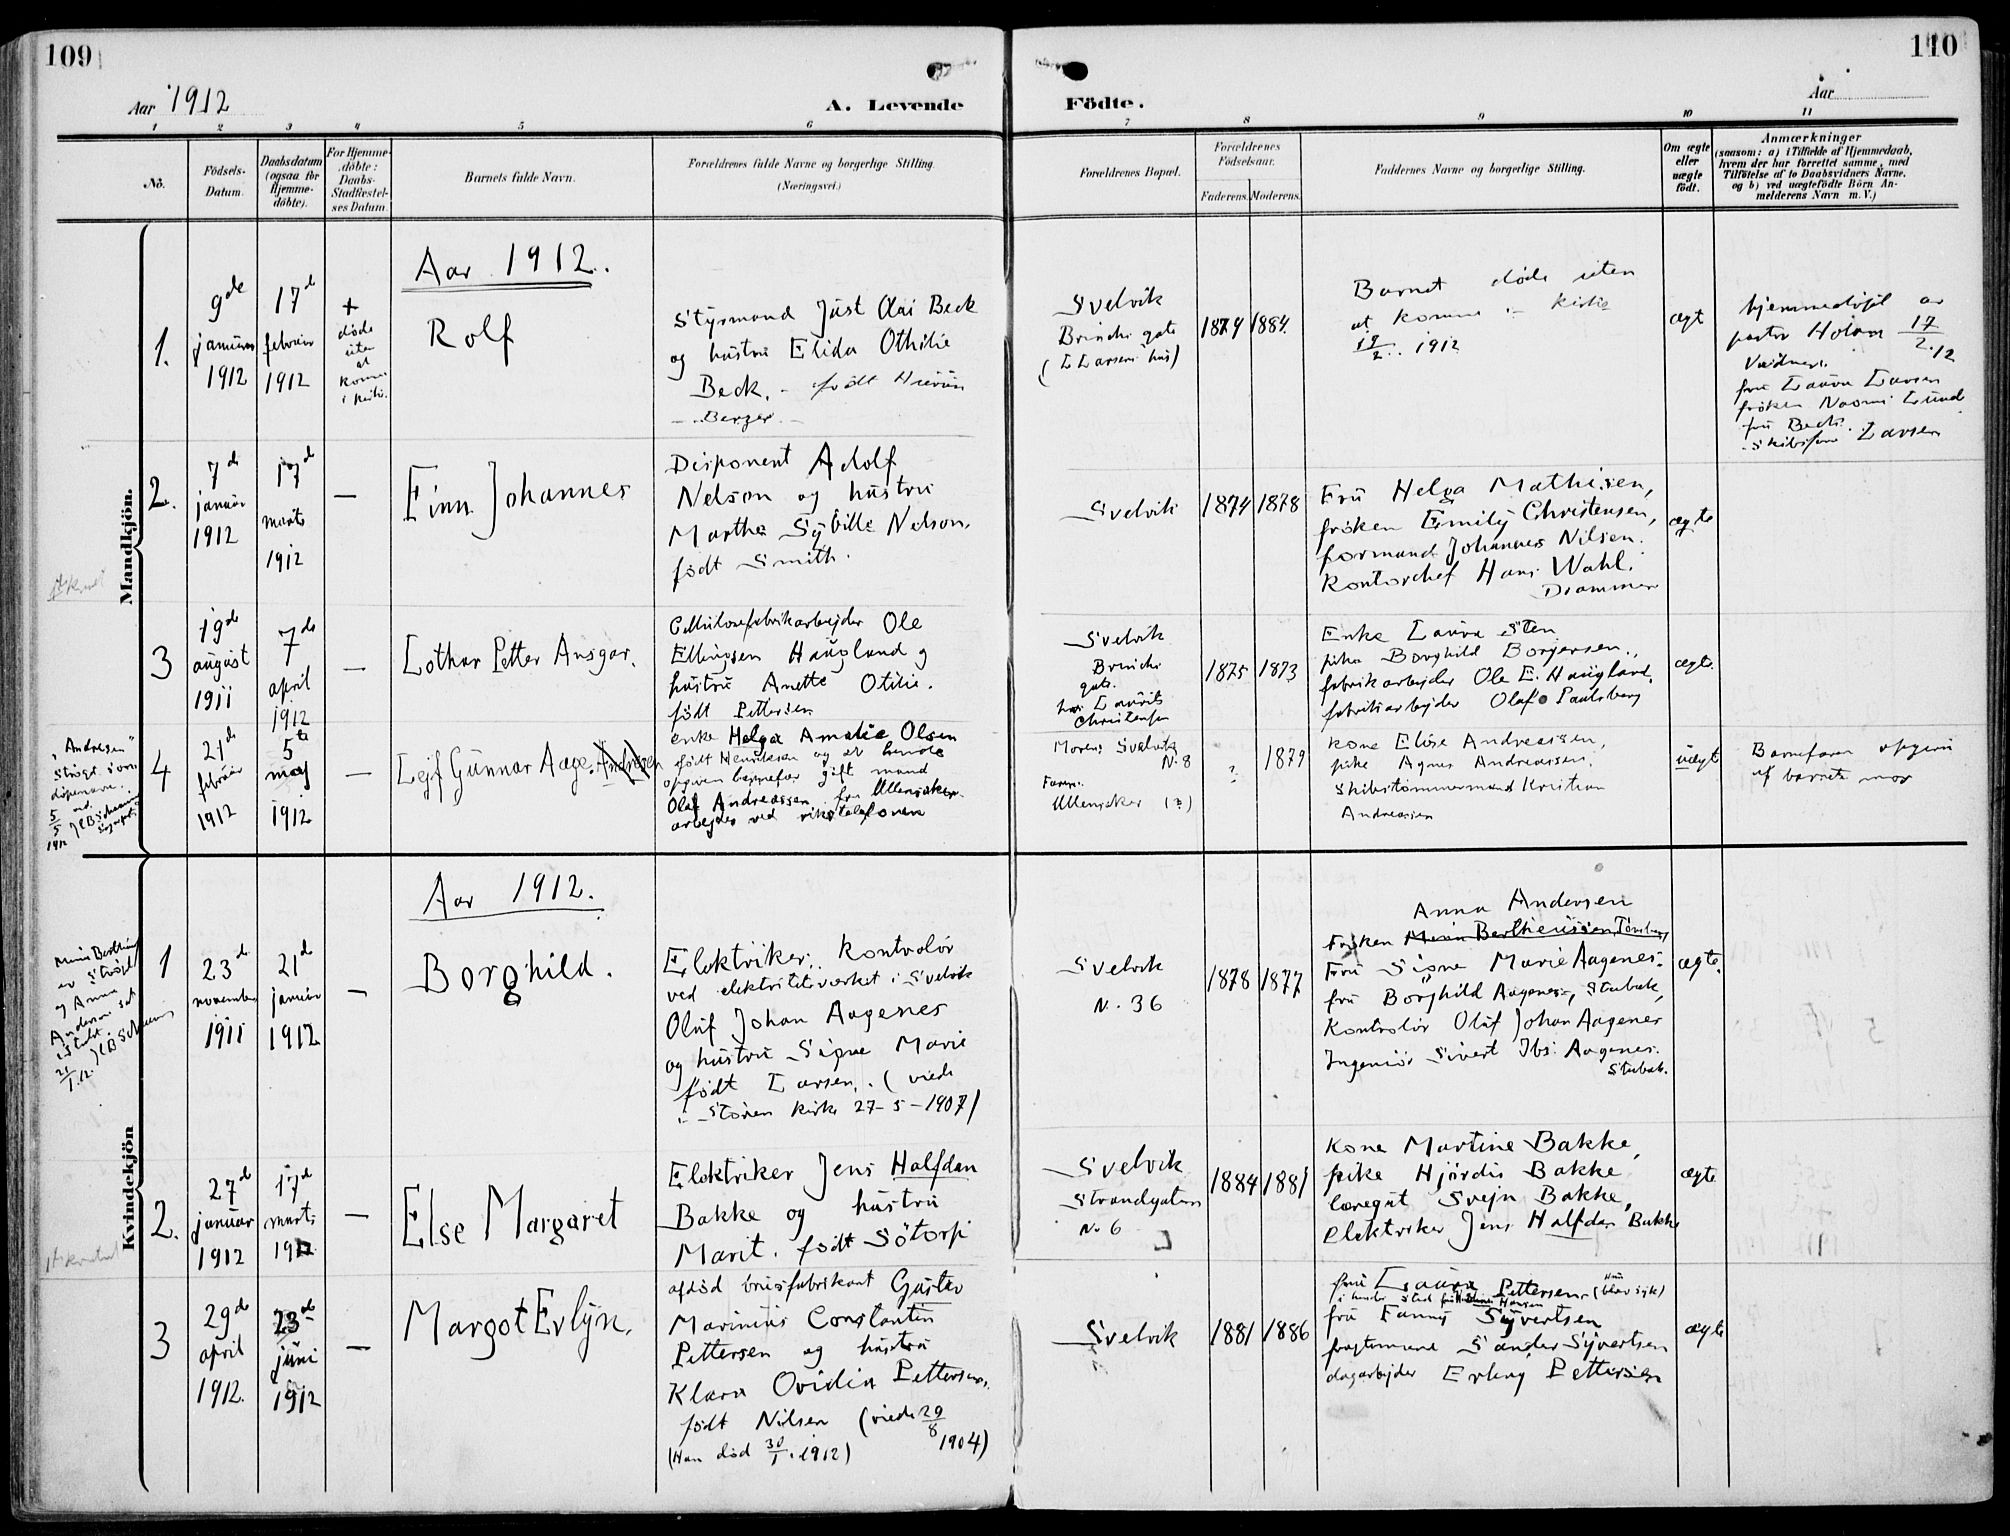 109
110
Aar 1912
A. Levende
Födte.
Aar
1 2 3 4 5 6 7 8 9 10 11
Nô.
Födsels-
Datum.
Daabsdatum
(ogsaa for
Hjemme-
döbte).
For Hjemme-
döbte:
Daabs-
Stadfæstel-
ses Datum.
Barnets fulde Navn.
Forældrenes fulde Navne og borgerlige Stilling.
(Næringsvei.)
Forældrenes Bopæl.
Forældrenes
Födselsaar.
Faderens. Moderens.
Faddernes Navne og borgerlige Stilling.
Om ægte
eller
uægte
födt.
Anmærkninger
(saasom: a) i Tilfælde af Hjemmedaab,
hvem der har forrettet samme, med
Tilföielse af to Daabsvidners Navne,
og b) ved uægtefödte Börn An-
melderens Navn m. V.)
Mandkjön.
Aar 1912.
1.
9de
januar
1912
17d
februar
1912
+
døde
uten
at
komme
i kirke.
Rolf
Styrmand Just Olai Beck
og hustru Elida Othilie
Beck. - født
Berger -
Svelvik
gate
(L Larsens hus)
1879
1884.
Barnet døde uten
at komme i kirke
19/2 1912
ægt
hjemmedøpt av
pastor Holom 17/2.12
Vidner:
fru Laura Larsen
frøken Naomi Lund
fru Beck.
Larsen
2.
7d
januar
1912
17d
marts
1912
—
Finn Johannes
Disponent Adolf
Nelson og hustru
Martha Sybille Nelson.
født Smith.
Svelvik
1874
1878
Fru Helga Mathisen,
frøken Emily Christensen,
formand Johannes Nilsen.
Kontorchef Hans Wahl.
Drammen
ægte
3
19de
august
1911
7de
april
1912
—
Lothar Petter Ansgar.
Cellulosefabrikarbejder Ole
Ellingsen Haugland og
hustru Anette Otilie.
født Pettersen
Svelvik
gate.
hos Laurits
Christensen
1875
1873
Enke Laura Sten
pike Borghild Borgersen.,
fabrikarbejder Ole E. Haugland.
fabrikarbejder Olaf Paulsberg
ægte.
"Andresen"
strøget som
døpenavn.
5/5 1912
4
21d
februar
1912
5te
maj
1912
—
Lejf Gunnar Aage. Andresen
enke Helga Amalie Olsen
født Henriksen og at hende
opgiven barnefar gift mand
Olaf Andreassen fra Ullensaker.
arbejder ved rikstelefonen
Morens Svelvik
N. 8
Faren:
Ullensaker (?)
?
1879
Kone Elise Andreassen,
pike Agnes Andreassen.
Skibstømmermand Kristian
Andreassen
uægt
Barnefaren opgivi
af barnets mor
Kvindekjön
Aar 1912.
er strøget
og Anna
Andersen sat
21/1.12.
1
23d
november
1911
21d
januar
1912
—
Borghild.
Elektriker, kontrolør
ved elektritetsværket i Svelvik
Oluf Johan Aagenes
og hustru Signe Marie
født Larsen. (viede
i Støren kirke 27-5-1907)
Svelvik
N. 36
1878
1877
Anna Andersen
Frøken Bertheussen, Tønsberg
Fru Signe Marie Aagenes.
fru Borghild Aagenes, Stubak,
Kontrolør Oluf Johan Aagenes
Ingeniør Sivert Ibs. Aagenes.
Stubak.
ægte.
2.
27d
januar
1912
17d
marts
1912
—
Else Margaret
Elektriker Jens Halfdan
Bakke og hustru
Marit. født Søtorp
Svelvik
Strandgaten
N. 6
1884
1881
Kone Martine Bakke,
pike Hjørdis Bakke
læregut Svejn Bakke,
elektriker Jens Halfdan Bakke
ægte
3
29de
april
1912.
23de
juni
1912
—
Margot Evlyn.
afdød brusfabrikant Gustav
Marinius Constantin
Pettersen og hustru
Klara Ovidia Pettersen.
født Nilsen (viede 29/8 1904)
(Han død 30/1.1912)
Svelvik
1881
1886
fru Laura Pettersen. (Hun blev syk)
i hendes sted fru Hansen
fru Fanny Syvertsen
Sander Syvertsen
dagarbejder Erling Pettersen
ægte